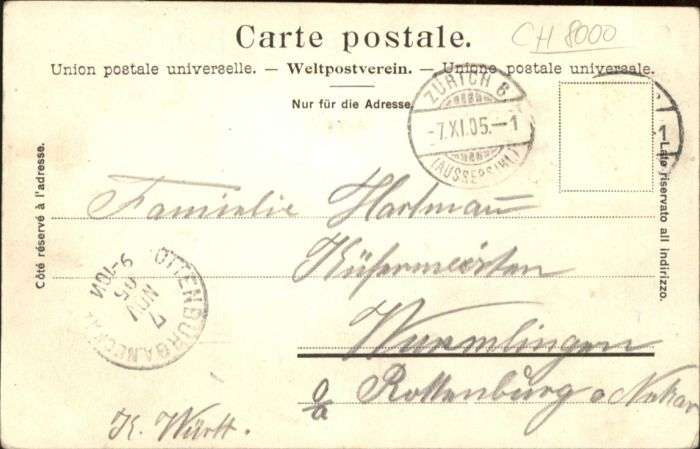 CH 8000
Carte postale.
Union postale universelle. — Weltpostverein. — Unione postale universale.
Nur für die Adresse.
ZÜRICH 6
-7.XI.05.-1
(AUSSERSIHL)
1
Côté réservé à l'adresse.
Lato riservato all indirizzo.
Familie Hartmann
Küfermeisters
Wurmlingen
o/a Rottenburg a Neckar
K. Württ.
ROTTENBURG A. NECKAR
7
NOV
05
9-10V